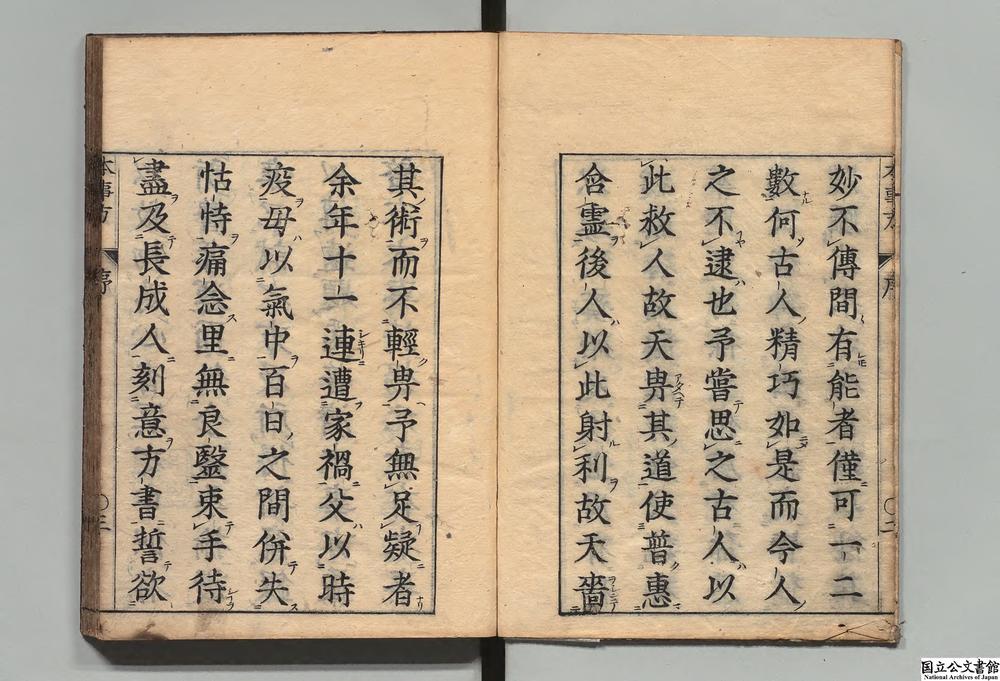 妙不傳間有能者僅可一二
數何古人精巧如是而今人
之不逮也予嘗思之古人以
此救人故天畀其道使普惠
含靈後人以此射利故天嗇
其術而不輕畀予無足疑者
余年十一連遭家禍父以時
疫母以氣中百日之間併失
怙恃痛念里無良醫束手待
盡及長成人刻意方書誓欲
本事方
序
〇三
国立公文書館
National Archives of Japan